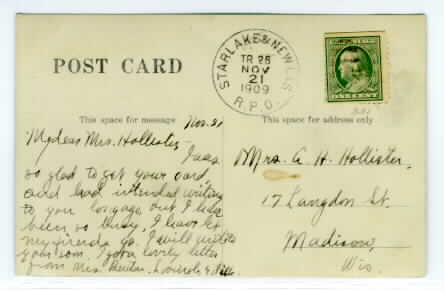 POST CARD
STARLAKE & NEW LIS
TR 26
NOV
21
1909
R.P.O.
This space for message
This space for address only
Nov. 21
My dear Mrs. Hollister
I was
so glad to get your card
and had intended writing
to you long ago but I have
been so busy, I have let
my friends go. I will write
you soon. I had a lovely letter
from Mrs.
Mrs. A. H. Hollister.
17 Langdon St.
Madison,
Wis.